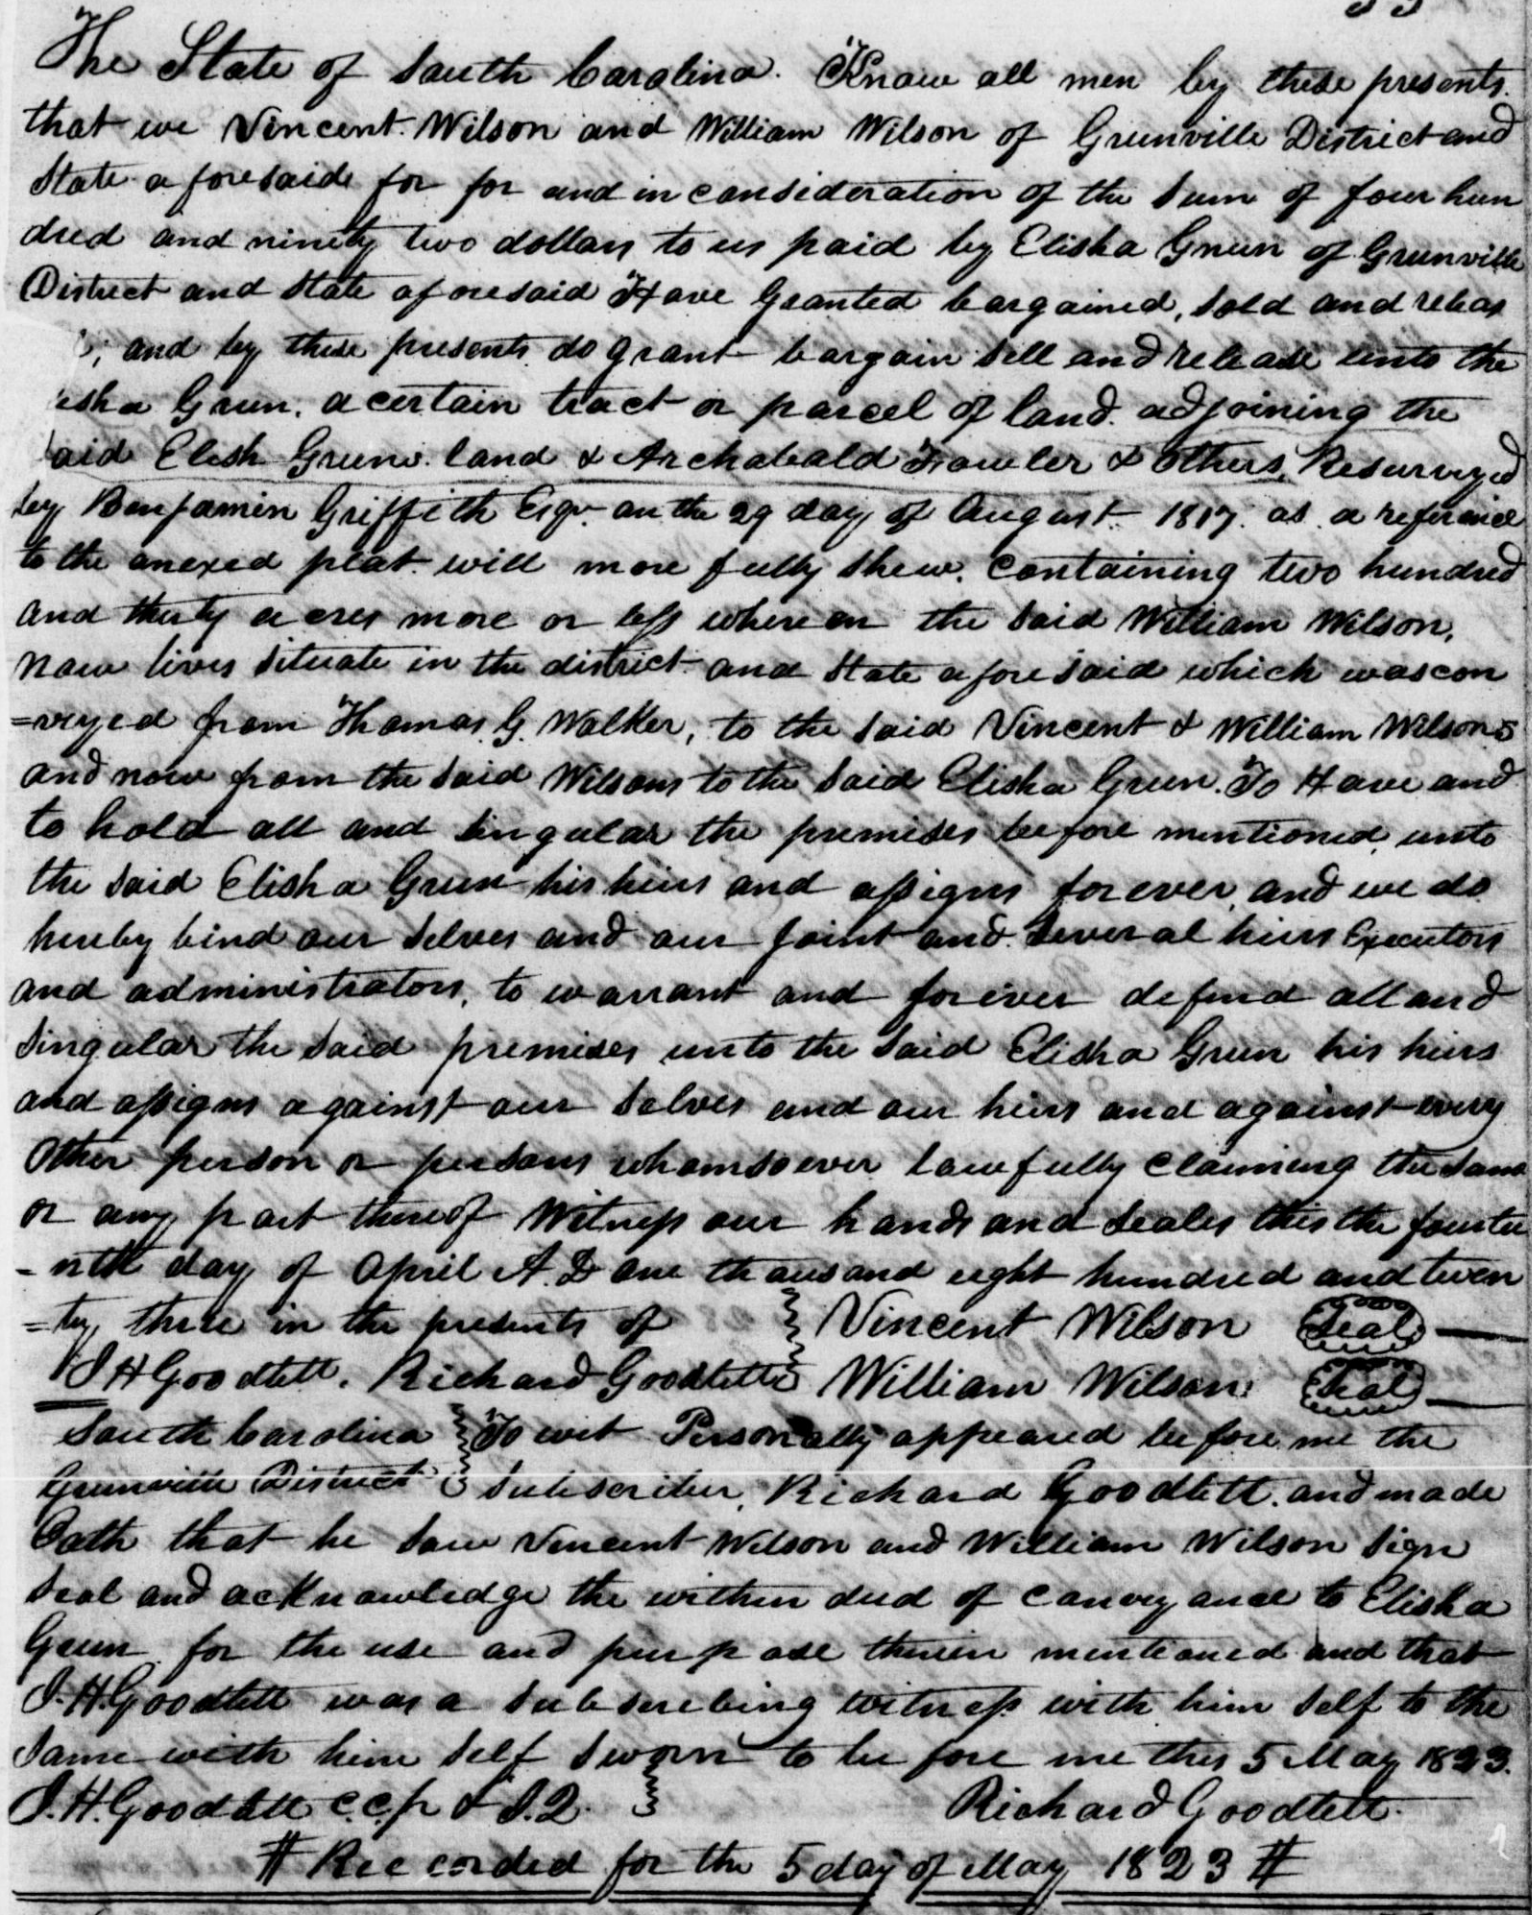 The State of South Carolina. Know all men by these presents.
that we Vincent Wilson and William Wilson of Greenville District and
State aforesaid for for and in consideration of the Sum of four hun
dred and ninety two dollars to us paid by Elisha Green of Greenville
District and State aforesaid Have Granted bargained, Sold and releas
and by these presents do grant bargain Sell and release unto the
isha Green, a certain tract or parcel of land adjoining the
said Elish Greens land & Archabald Fowler & others, Resurveyed
by Benjamin Griffith Esqr. on the 29 day of August 1817. as a reference
to the anexed plat will more fully Shew. Containing two hundred
and thirty acres more or less whereon the Said William Wilson,
now lives Situate in the district and State aforesaid which was con
=veyed from Thomas G. Walker, to the Said Vincent & William Wilsons
and now from the Said Wilsons to the Said Elisha Green. To Have and
to hold all and Singular the premises before mentioned unto
the Said Elisha Green his heirs and assigns forever, and we do
hereby bind our Selves and our Joint and Several heirs Executors
and administrators, to warrant and forever defend all and
Singular the Said premises unto the Said Elisha Green his heirs
and assigns against our Selves and our heirs and against every
Other person or persons whomsoever lawfully Claiming the Same
or any part thereof Witness our hands and Seales this the fourtee
-nth day of April A. D one thousand eight hundred and twen
=ty three in the presents of Vincent Wilson Seal
J H Goodlett. Richard Goodlett William Wilson Seal
South Carolina To wit Personally appeared before me the
Greenville District Subscriber, Richard Goodlett. and made
Oath that he Saw Vincent Wilson and William Wilson Sign
Seal and acknowledge the within deed of conveyance to Elisha
Green for the use and purpose therein mentioned and that
J. H. Goodlett was a Subscribing witness with him Self to the
Same with him Self Sworn to before me this 5 May 1823.
J. H. Goodlett c.c.p & J. Q. Richard Goodlett.
# Reecorded for the 5 day of May 1823 #